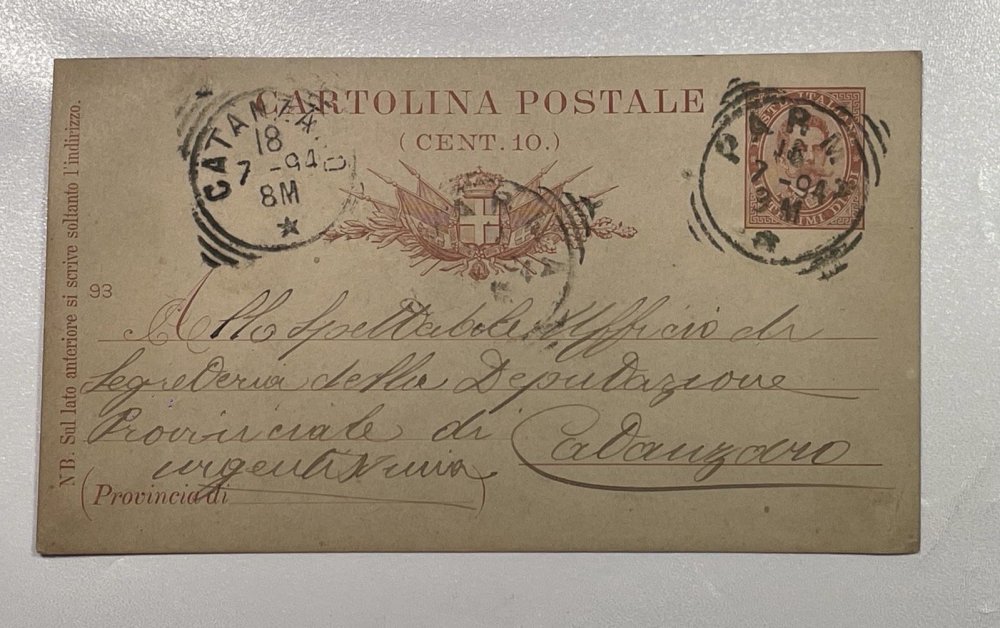 CARTOLINA POSTALE
(CENT. 10.)
CATANZARO
18
7-94
8M
PARM
18
7-94
93
N B. Sul lato anteriore si scrive soltanto l'indirizzo.
Allo Spettabile Ufficio di
Segreteria della Deputazione
Provinciale di Catanzaro
urgentissima
(Provincia di )